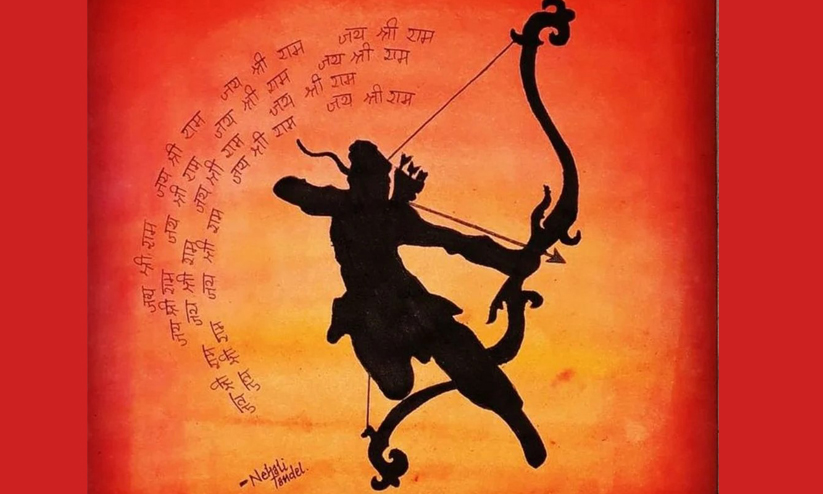 जय श्री राम
जय श्री राम
जय श्री राम
जय श्री राम
जय श्री राम
जय श्री राम
जय श्री राम
जय श्री राम
जय श्री राम
जय श्री राम
जय श्री राम
जय श्री राम
जय श्री राम
जय श्री राम
जय श्री राम
जय श्री राम
-Nehali
Tendel.